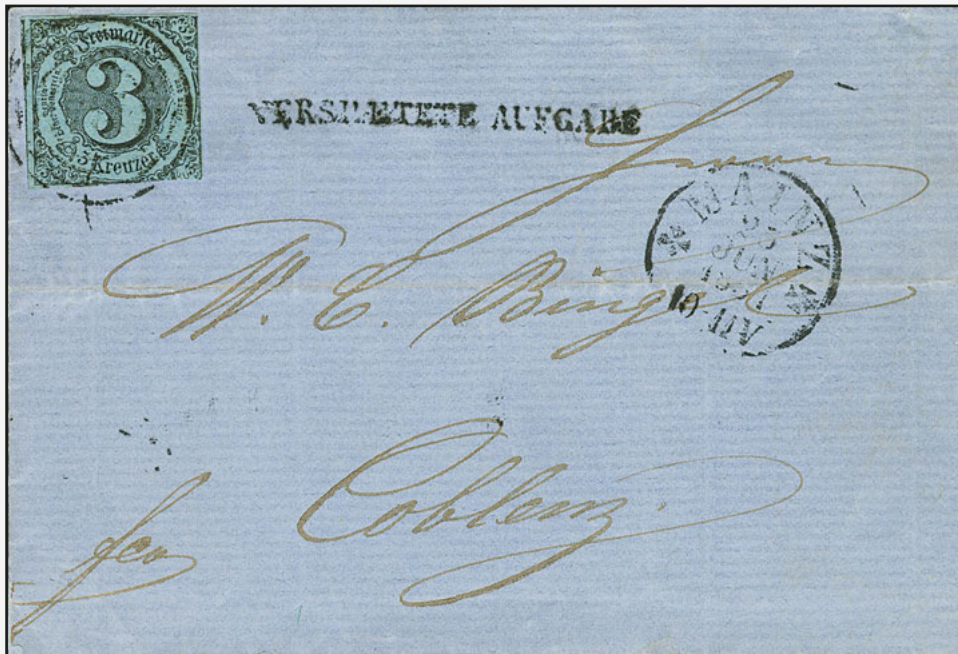 Freimarke
3
Kreuzer
VERSPAETETE AUFGABE
Herrn
MAINZ
JUN
W. C. Bingel
Coblenz.
fco